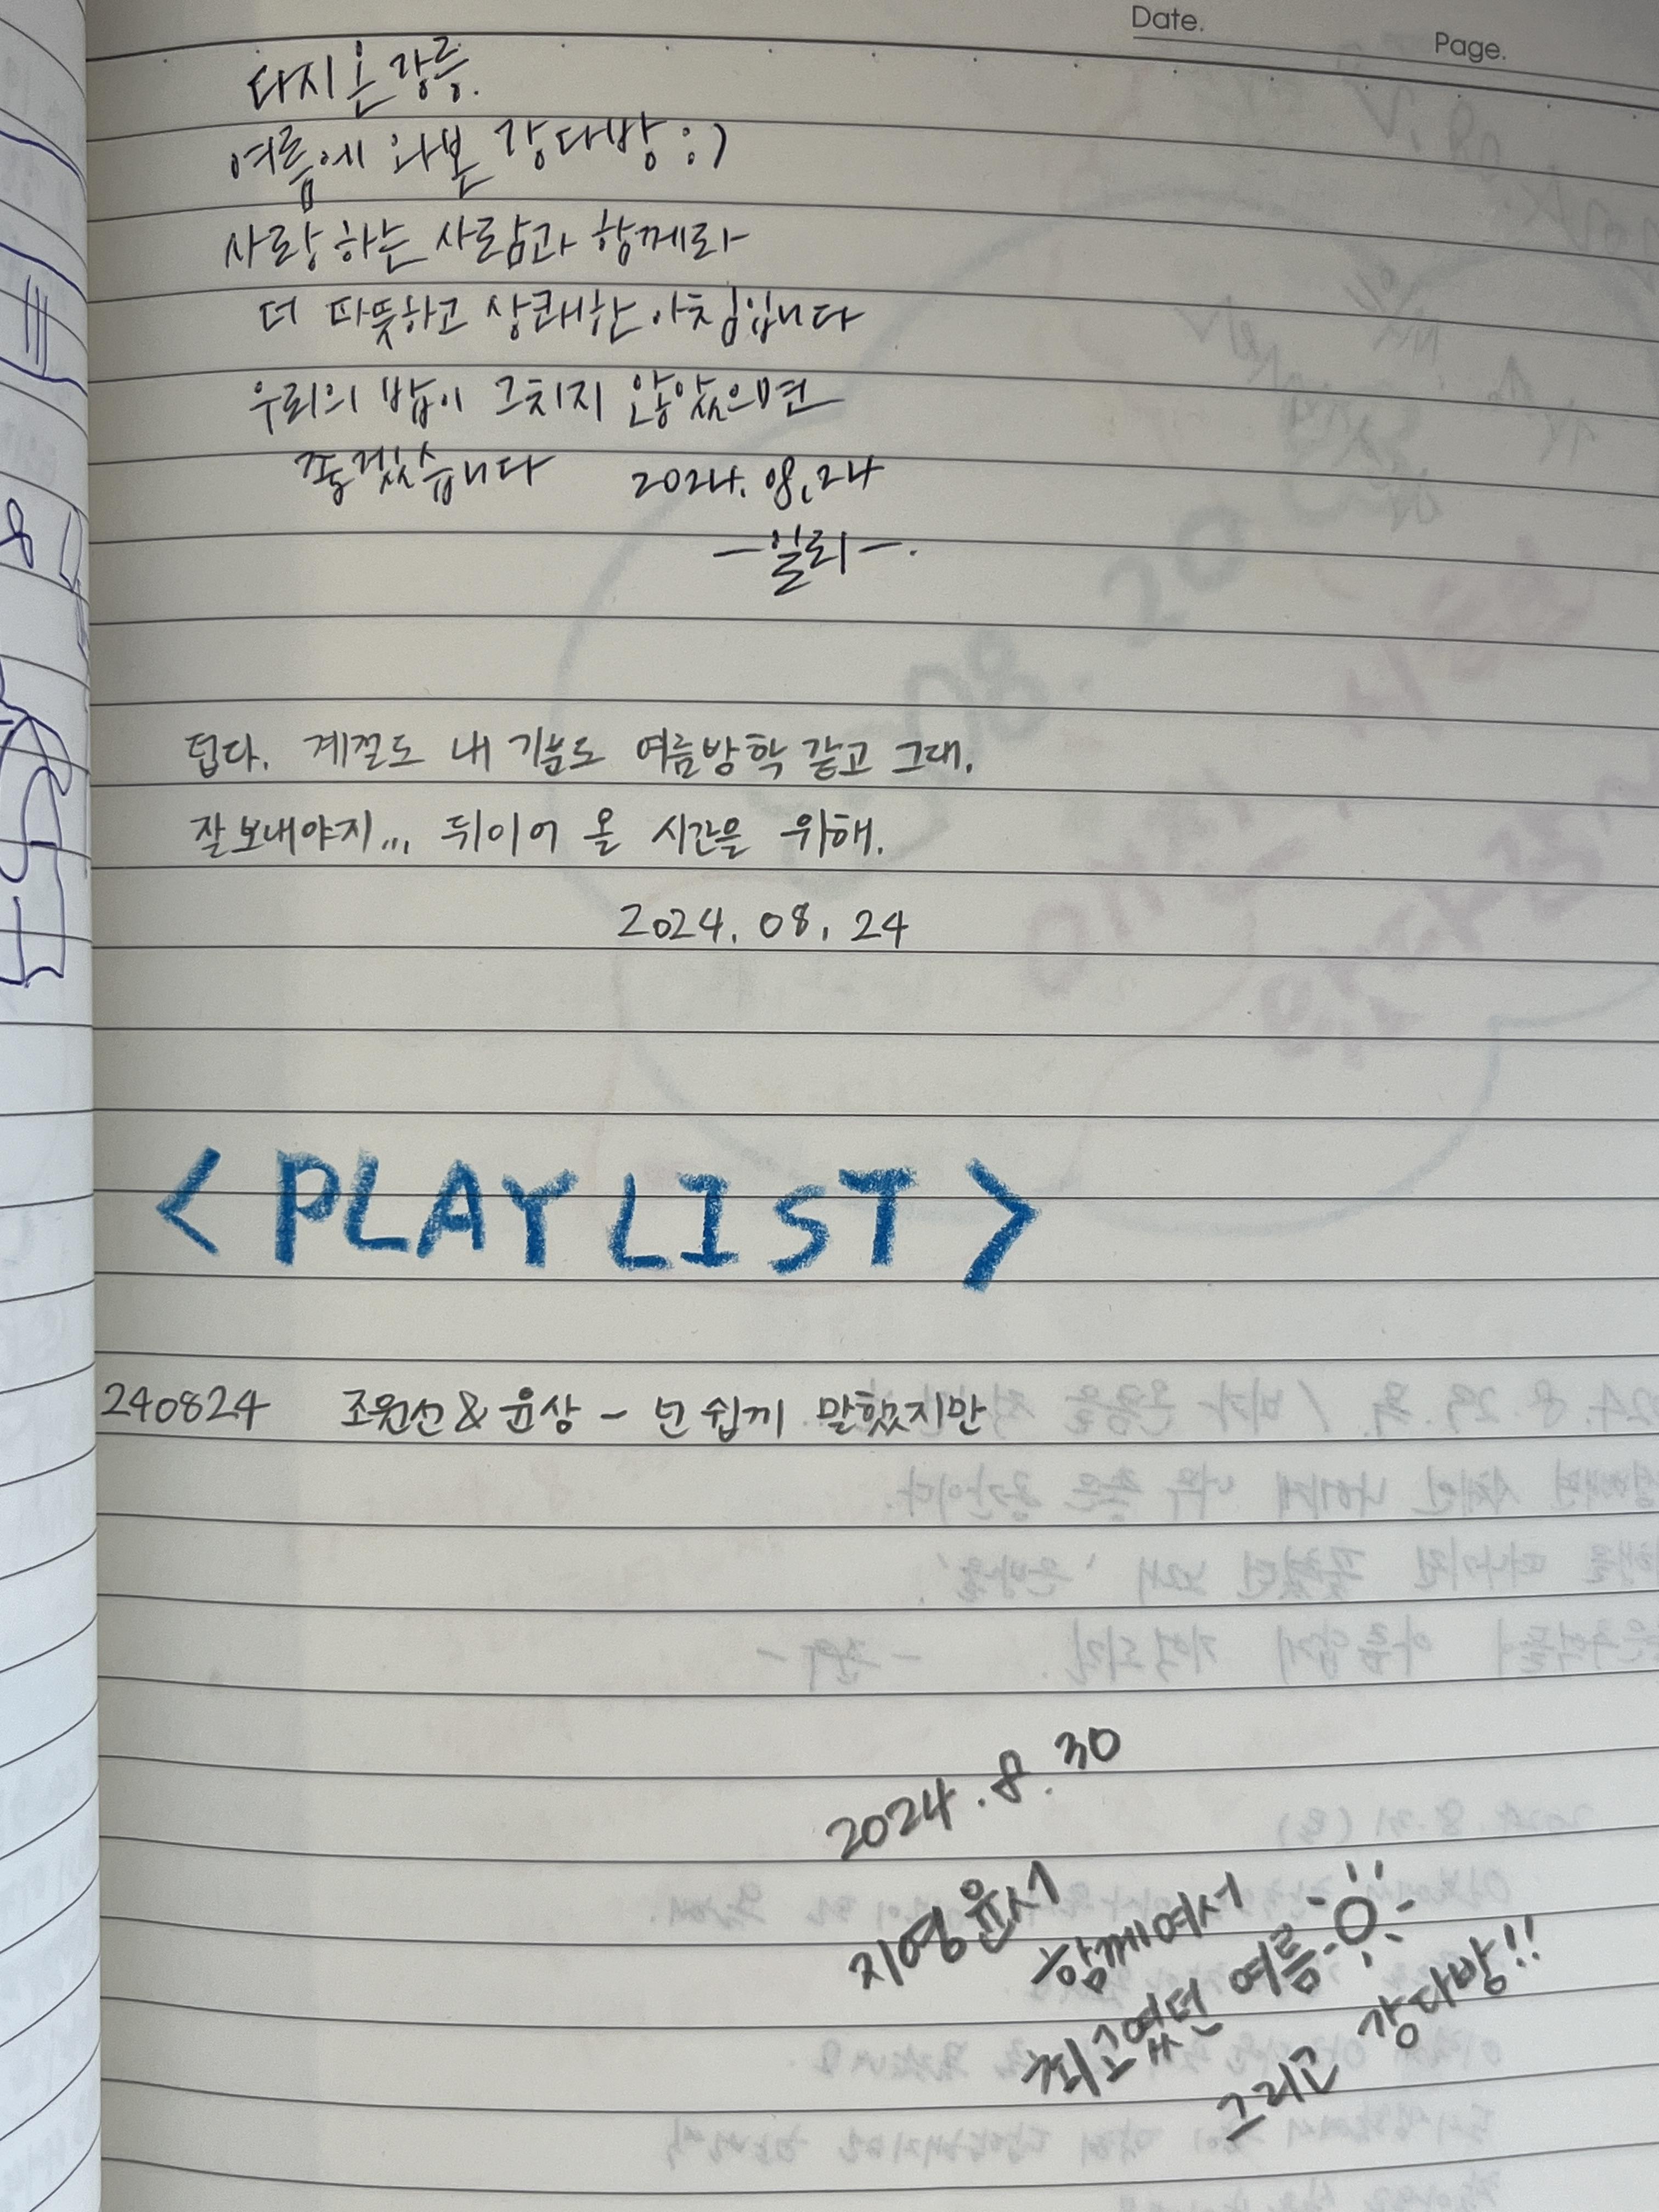 Date.
Page.
다시 온 강릉.
여름에 와본 강다방 :)
사랑하는 사람과 함께라
더 따뜻하고 상쾌한 아침입니다
우리의 밤이 그치지 않았으면
좋겠습니다 2024.08.24
-일리-.
덥다. 계절도 내 기분도 여름방학 같고 그래.
잘 보내야지... 뒤이어 올 시간을 위해.
2024.08.24
<PLAYLIST>
240824 조원선&윤상 - 넌 쉽게 말했지만
2024.8.30
지영윤서
함께여서
최고였던 여름
그리고 강다방!!